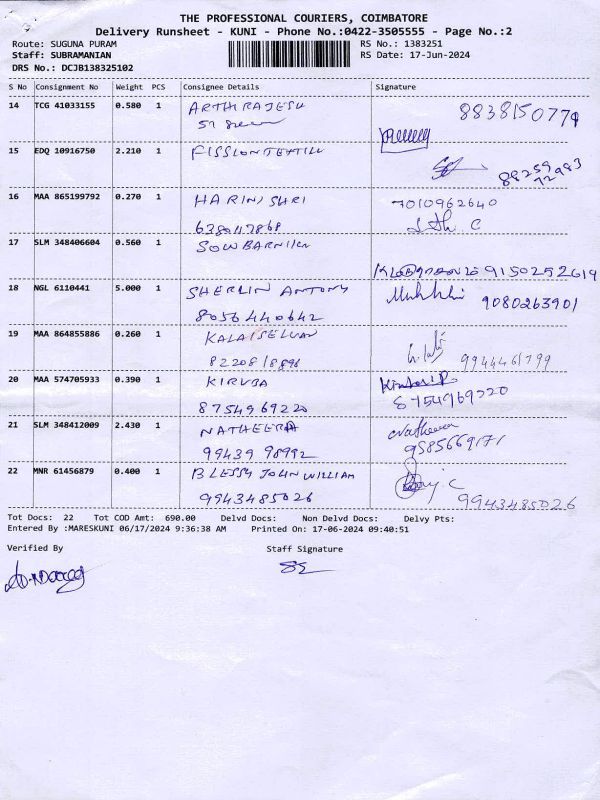 THE PROFESSIONAL COURIERS, COIMBATORE
Delivery Runsheet - KUNI - Phone No.:0422-3505555 - Page No.:2
Route: SUGUNA PURAM RS No.: 1383251
Staff: SUBRAMANIAN RS Date: 17-Jun-2024
DRS No.: DCJB138325102
S No Consignment No Weight PCS Consignee Details Signature
14 TCG 41033155 0.580 1 ARTHI RAJESH 8838150779
15 EDQ 10916750 2.210 1 FISSIONTEXTILE
88259
72983
16 MAA 865199792 0.270 1 HARINI SHRI 7010962640
6380117868
17 SLM 348406604 0.560 1 SOWBARNIKA
9150252619
18 NGL 6110441 5.000 1 SHERLIN ANTONY
8056440642 9080263901
19 MAA 864855886 0.260 1 KALAISELVAN
9944461799
20 MAA 574705933 0.390 1 KIRUBA
8754969220 8754969220
21 SLM 348412009 2.430 1 NATHEERA
99439 98992 9585669171
22 MNR 61456879 0.400 1 BLESSY JOHN WILLIAM
9943485026 9943485026
Tot Docs: 22 Tot COD Amt: 690.00 Delvd Docs: Non Delvd Docs: Delvy Pts:
Entered By :MARESKUNI 06/17/2024 9:36:38 AM Printed On: 17-06-2024 09:40:51
Verified By Staff Signature